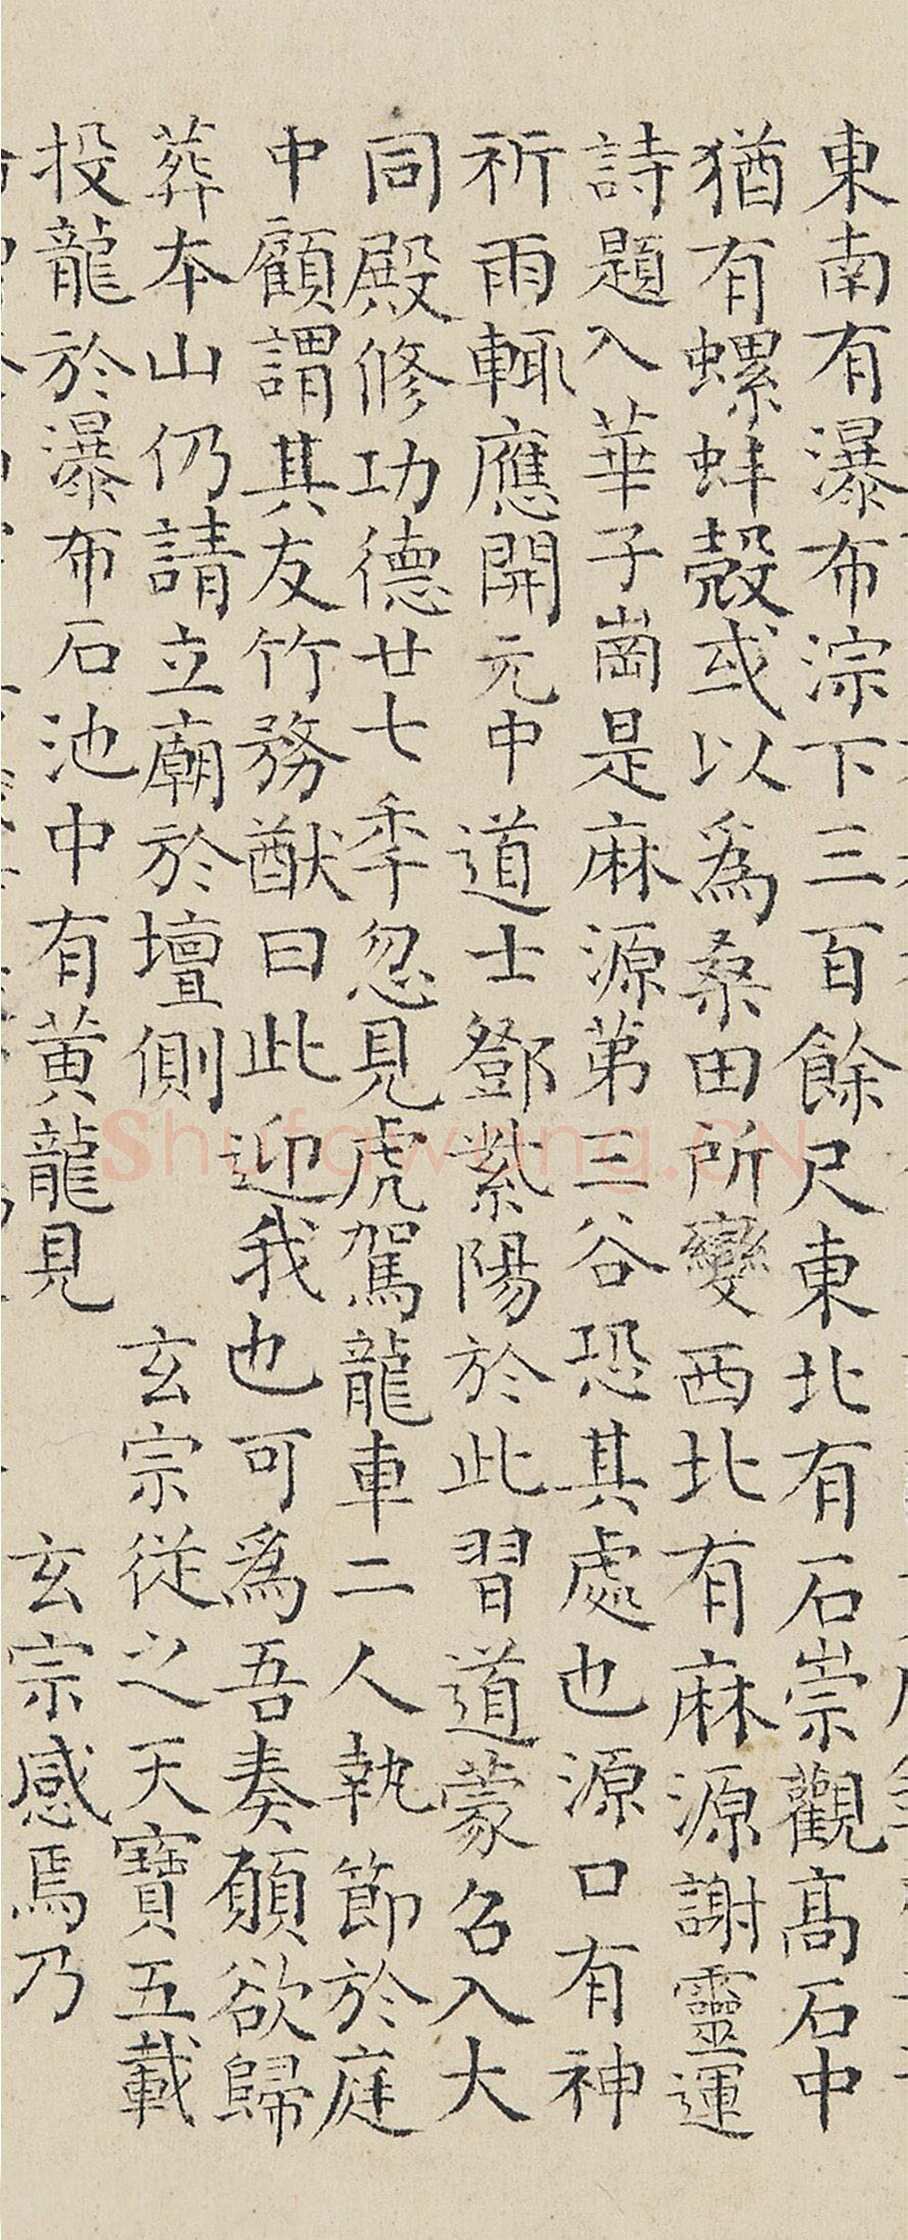 東南有瀑布淙下三百餘尺東北有石崇觀高石中
猶有螺蚌殼或以為桑田所變西北有麻源謝靈運
詩題入華子崗是麻源第三谷恐其處也源口有神
祈雨輒應開元中道士鄧紫陽於此習道蒙召入大
同殿修功德廿七季忽見虎駕龍車二人執節於庭
中顧謂其友竹務猷曰此迎我也可為吾奏願欲歸
葬本山仍請立廟於壇側 玄宗從之天寶五載
投龍於瀑布石池中有黃龍見 玄宗感焉乃
Shufawang.CN